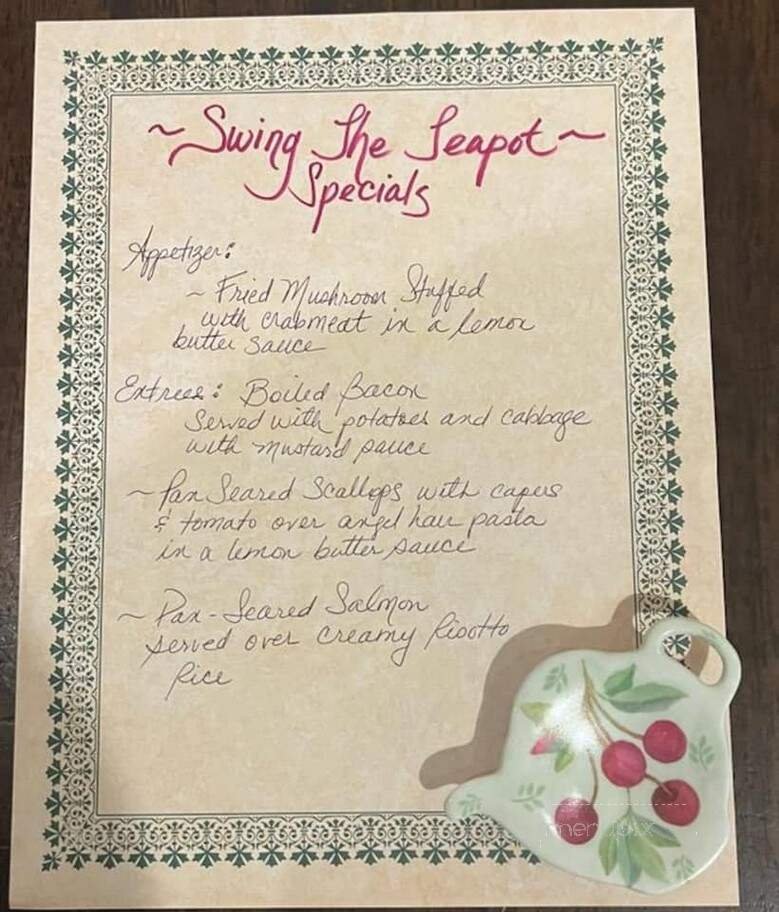 ~ Swing The Teapot ~
Specials
Appetizer:
~ Fried Mushroom Stuffed
with crabmeat in a lemon
butter sauce
Entrees: Boiled Bacon
Served with potatoes and cabbage
with mustard sauce
~ Pan Seared Scallops with capers
& tomato over angel hair pasta
in a lemon butter sauce
~ Pan-Seared Salmon
served over creamy Risotto
Rice
menupix